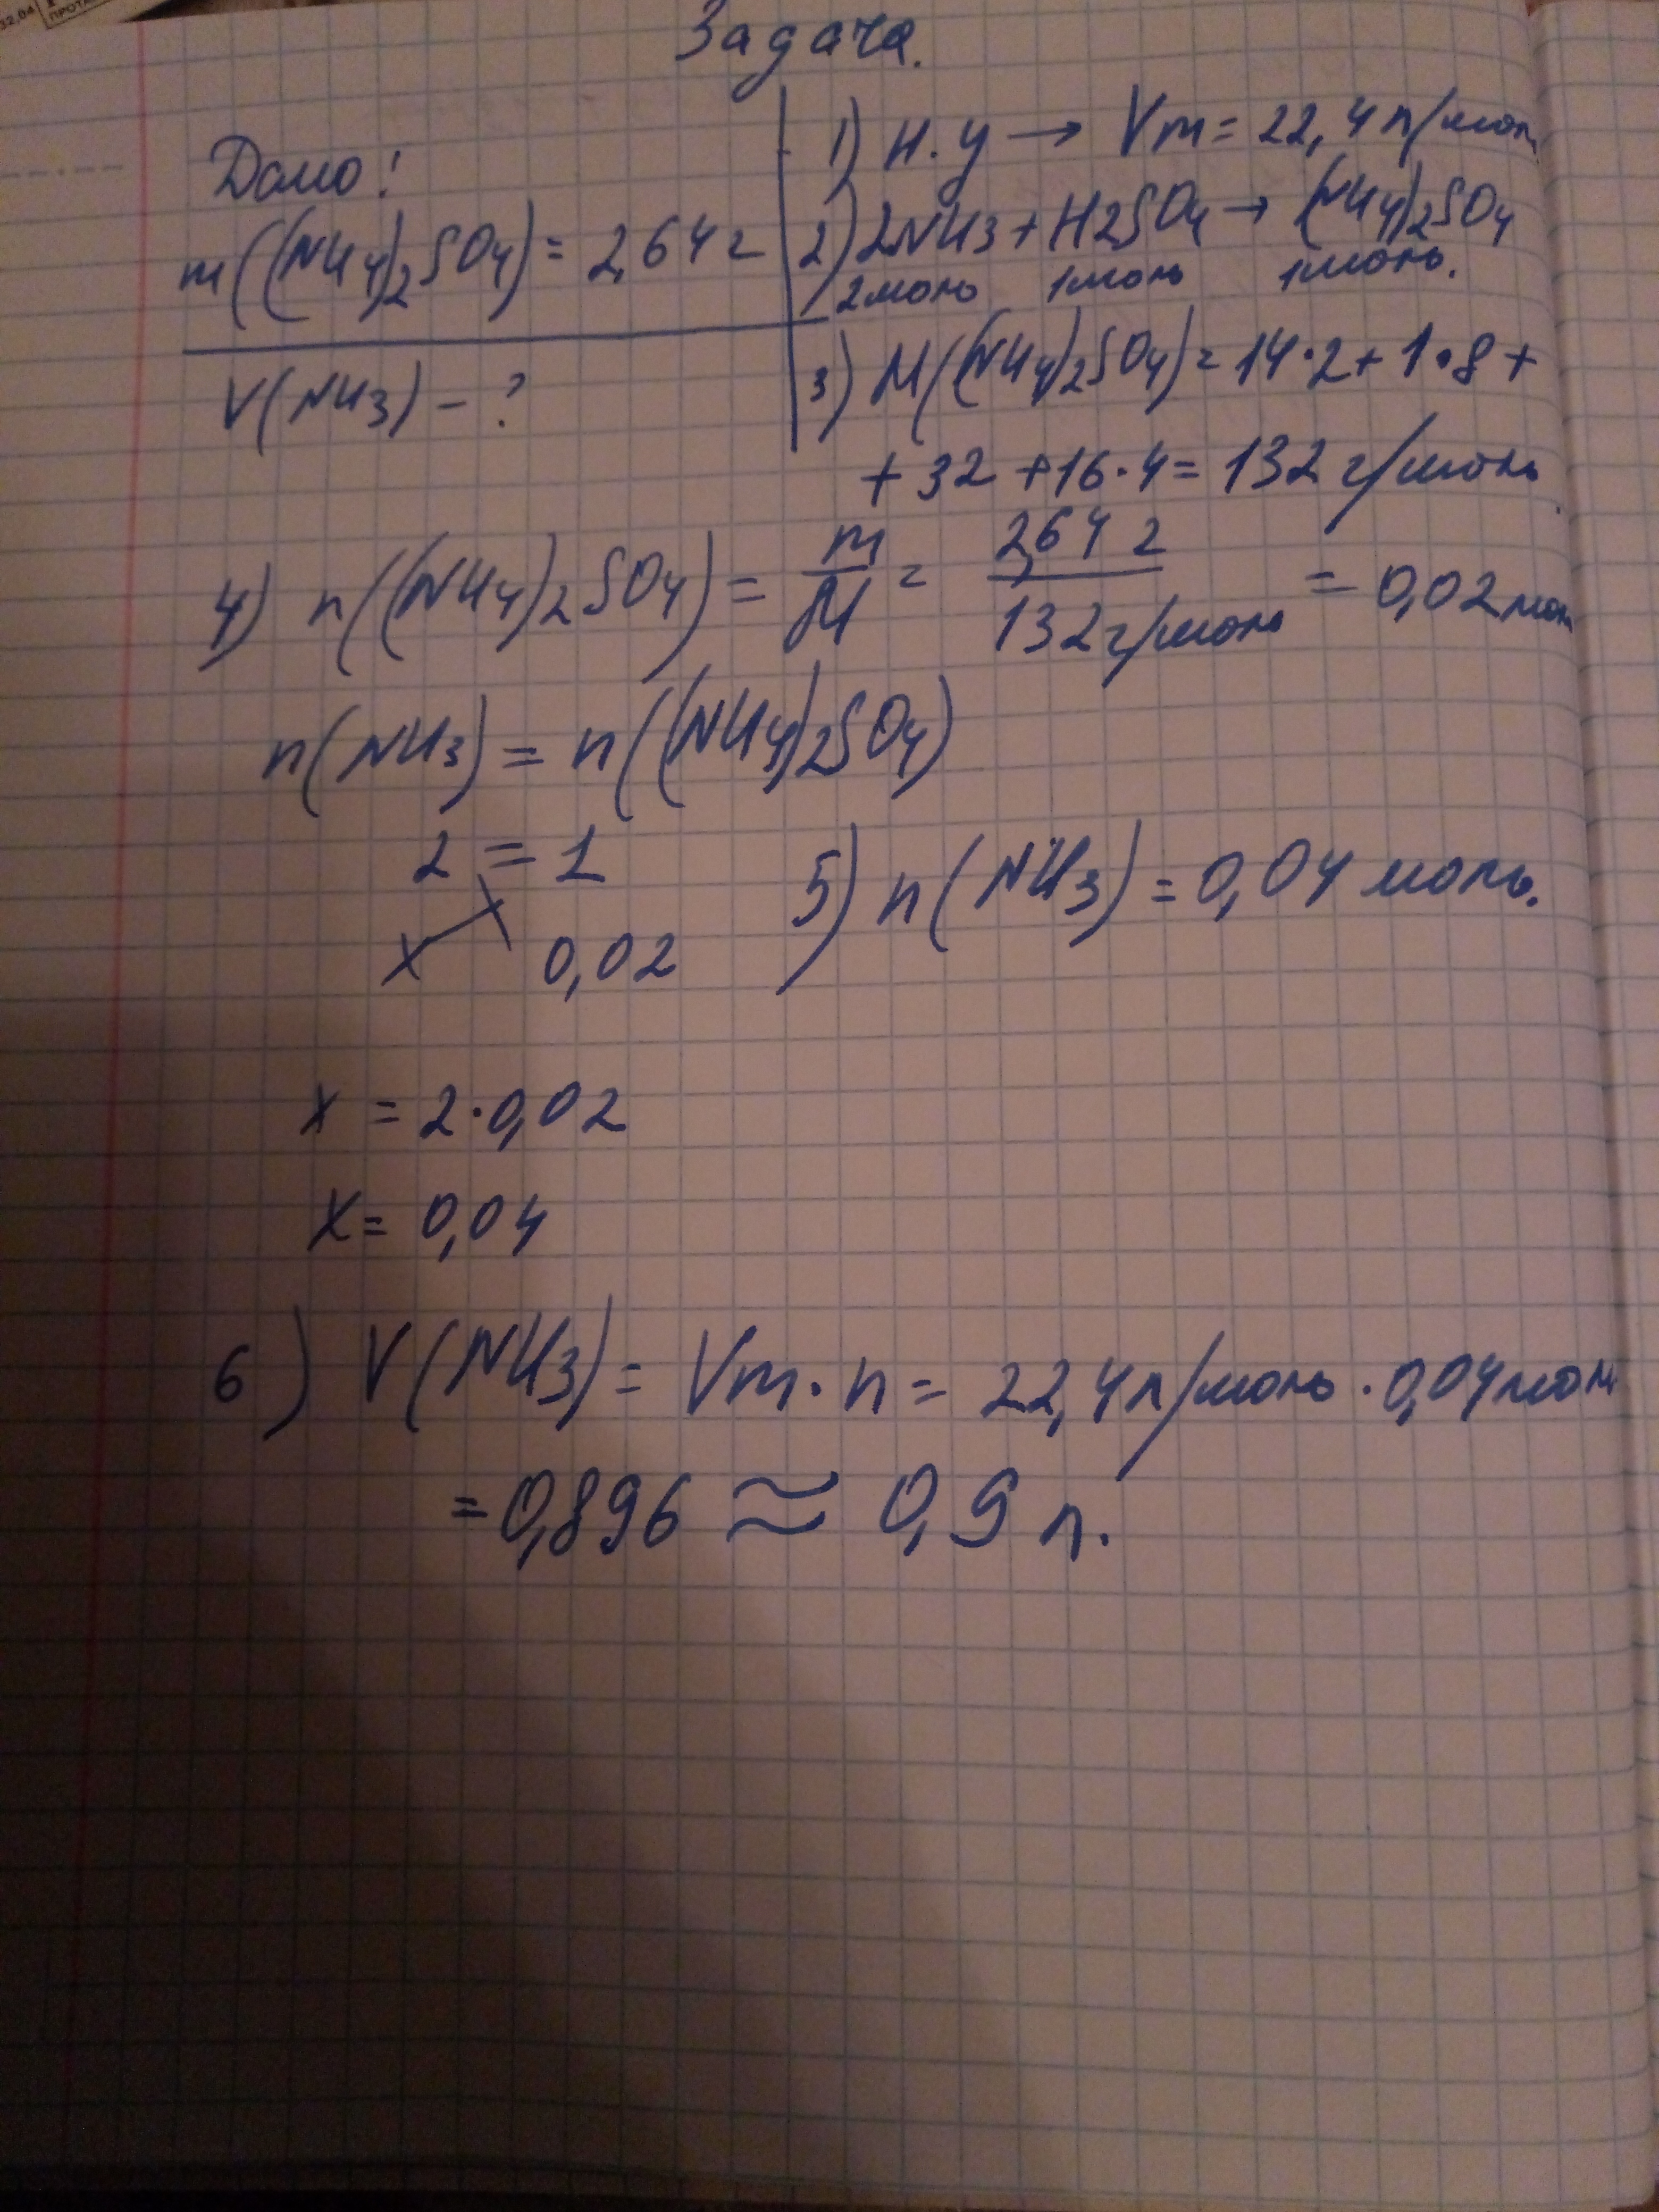 32,04
ПРОТА
Задача.
Дано:
m((NH4)2SO4) = 2,64 г
V(NH3) - ?
1) н.у → Vm = 22,4 л/мол
2) 2NH3 + H2SO4 → (NH4)2SO4
2моль 1моль 1моль.
3) M((NH4)2SO4) = 14·2 + 1·8 +
+ 32 + 16·4 = 132 г/моль
4) n((NH4)2SO4) = m/M = 2,64 г/132 г/моль = 0,02 мол
n(NH3) = n((NH4)2SO4)
2 = 1
x 0,02
5) n(NH3) = 0,04 моль.
x = 2·0,02
x = 0,04
6) V(NH3) = Vm · n = 22,4 л/моль · 0,04 мол
= 0,896 ≈ 0,9 л.